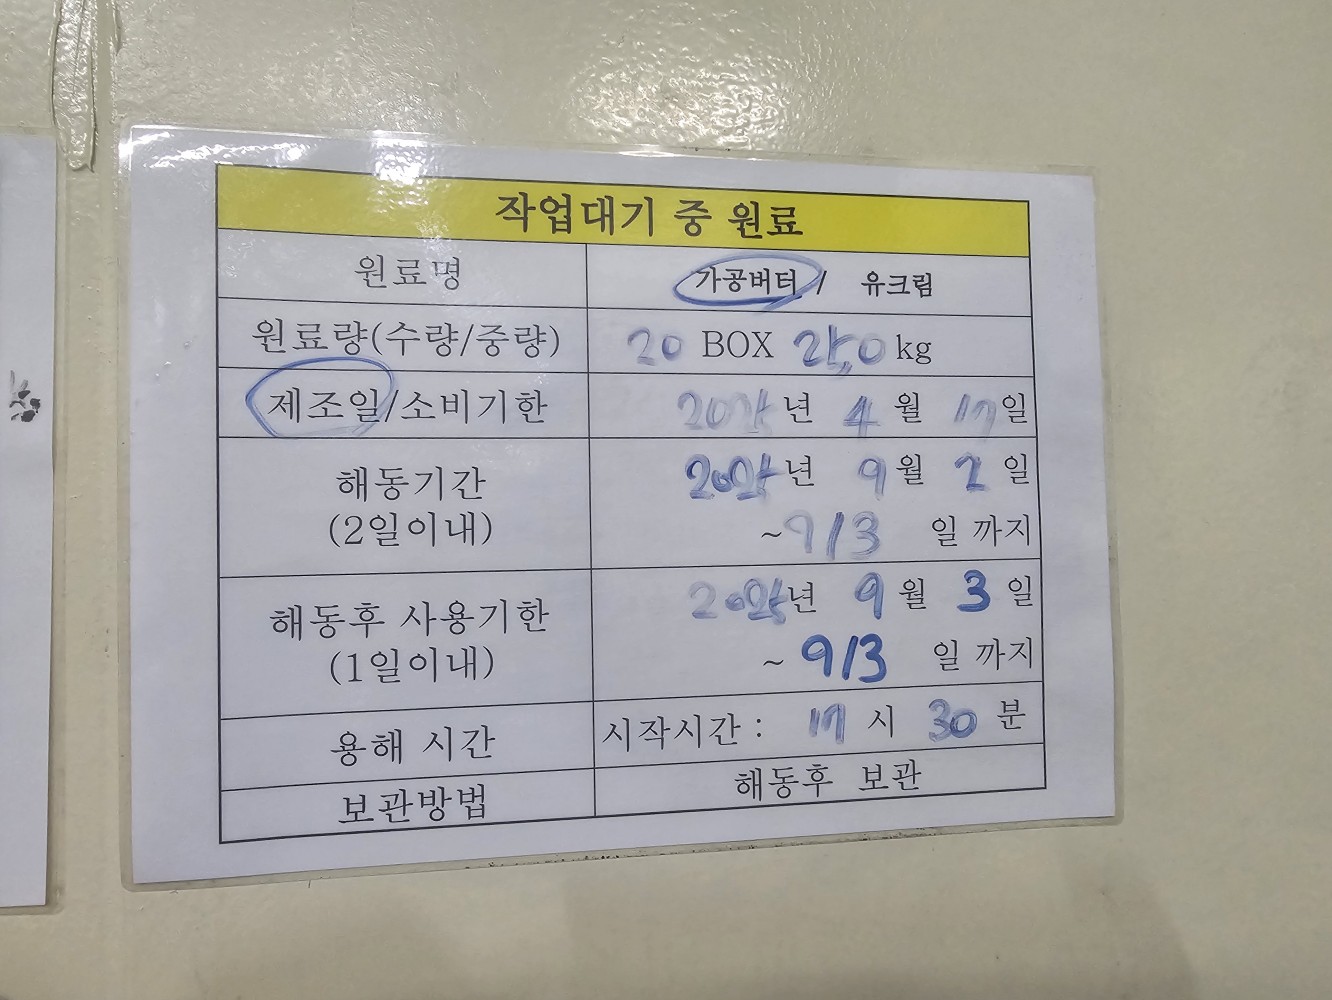 작업대기 중 원료
원료명 가공버터 / 유크림
원료량(수량/중량) 20 BOX kg
제조일/소비기한 년 4월 17일
해동기간 년 9월 2일
(2일이내) ~9/3 일 까지
해동후 사용기한 년 9월 3일
(1일이내) ~ 9/3 일 까지
용해 시간 시작시간 : 17 시 30 분
보관방법 해동후 보관